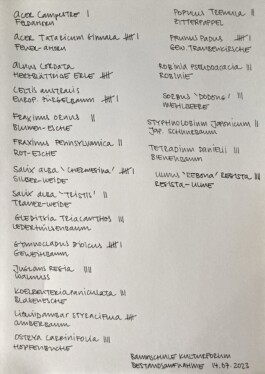 ACER CAMPESTRE |
FELDAHORN
ACER TATARICUM GINNALA |||| |
FEUER-AHORN
ALNUS CORDATA
HERZBLÄTTRIGE ERLE ||||
CELTIS AUSTRALIS
EUROP. ZÜRGELBAUM |||| |
FRAXINUS ORNUS ||
BLUMEN-ESCHE
FRAXINUS PENNSYLVANICA ||
ROT-ESCHE
SALIX ALBA 'CHERMESINA' ||||
SILBER-WEIDE
SALIX ALBA 'TRISTIS' ||
TRAUER-WEIDE
GLEDITSIA TRIACANTHOS |||
LEDERHÜLSENBAUM
GYMNOCLADUS DIOICUS |||| |
GEWEIHBAUM
JUGLANS REGIA ||||
WALNUSS
KOELREUTERIA PANICULATA |||
BLASENESCHE
LIQUIDAMBAR STYRACIFLUA |||| |
AMBERBAUM
OSTRYA CARPINIFOLIA |||
HOPFENBUCHE
POPULUS TREMULA ||
ZITTERPAPPEL
PRUNUS PADUS |||| |
GEW. TRAUBENKIRSCHE
ROBINIA PSEUDOACACIA |||
ROBINIE
SORBUS 'DODONG' |||
MEHLBEERE
STYPHNOLOBIUM JAPONICUM ||
JAP. SCHNURBAUM
TETRADIUM DANIELLII |||
BIENENBAUM
ULMUS 'REBONA' RESISTA ||||
RESISTA-ULME
BAUMSCHULE KULTURFORUM
BESTANDSAUFNAHME 14.07.2022